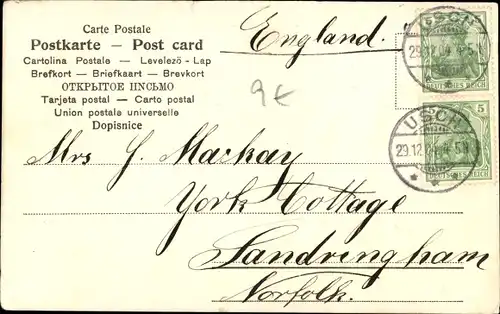 Carte Postale
Postkarte — Post card
Cartolina Postale — Levelezö - Lap
Brefkort — Briefkaart — Brevkort
ОТКРЫТОЕ ПИСЬМО
Tarjeta postal — Carto postal
Union postale universelle
Dopisnice
England.
9 €
USCH
29.12.04 4-5N
DEUTSCHES REICH
5
USCH
29.12.04 4-5N
DEUTSCHES REICH
Mrs J. Mackay
York Cottage
Sandringham
Norfolk.